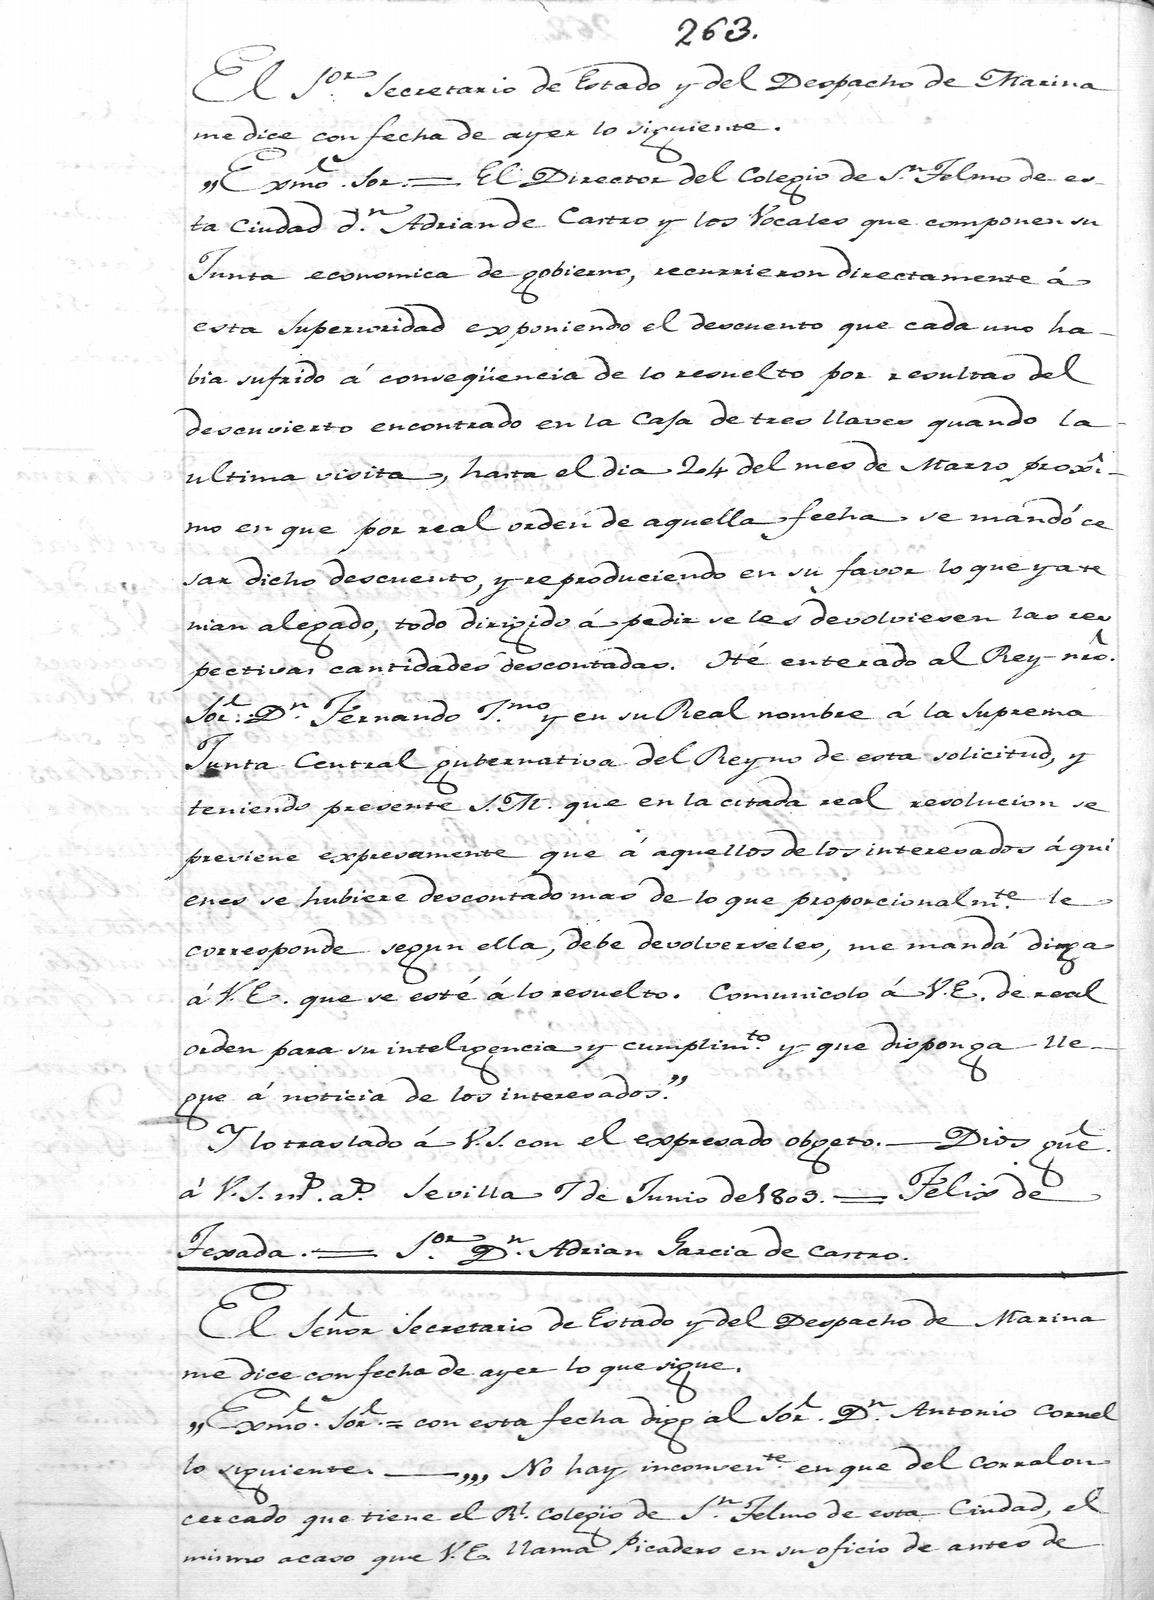 263.
El S.or Secretario de Estado y del Despacho de Marina
me dice con fecha de ayer lo siguiente.
„Exmo. Sor. = El Director del Colegio de S.n Telmo de es-
ta Ciudad d.n Adrian de Castro y los Vocales que componen su
Junta economica de gobierno, recurrieron directamente á
esta Superioridad exponiendo el descuento que cada uno ha-
bia sufrido á conseqüencia de lo resuelto por resultas del
descuvierto encontrado en la Caja de tres llaves quando la
ultima visita, hasta el dia 24 del mes de Marzo proxi-
mo en que por real orden de aquella fecha se mandó ce
sar dicho descuento, y reproduciendo en su favor lo que ya te
nian alegado, todo dirigido á pedir se les devolviesen las res
pectivas cantidades descontadas. Hé enterado al Rey nro.
Sor. D.n Fernando 7.mo y en su Real nombre á la Suprema
Junta Central gubernativa del Reyno de esta solicitud, y
teniendo presente S.M. que en la citada real resolucion se
previene expresamente que á aquellos de los interesados á qui
enes se hubiere descontado mas de lo que proporcionalm.te le
corresponde segun ella, debe devolverseles, me manda diga
á V.E. que se esté á lo resuelto. Comunicolo á V.E. de real
orden para su inteligencia y cumplim.to y que disponga lle-
gue á noticia de los interesados."
Y lo traslado á V.S. con el expresado objeto. — Dios gue.
á V.S. m.s a.s Sevilla 7 de Junio de 1809. = Felix de
Texada. = S.or D.n Adrian Garcia de Castro.
El Señor Secretario de Estado y del Despacho de Marina
me dice con fecha de ayer lo que sigue.
„Exmo. Sor. = con esta fecha digo al Sor. D.n Antonio Cornel
lo siguiente. —„„ No hay inconven.te en que del corralon
cercado que tiene el R.l Colegio de S.n Telmo de esta Ciudad, el
mismo acaso que V.E. llama Picadero en su oficio de antes de